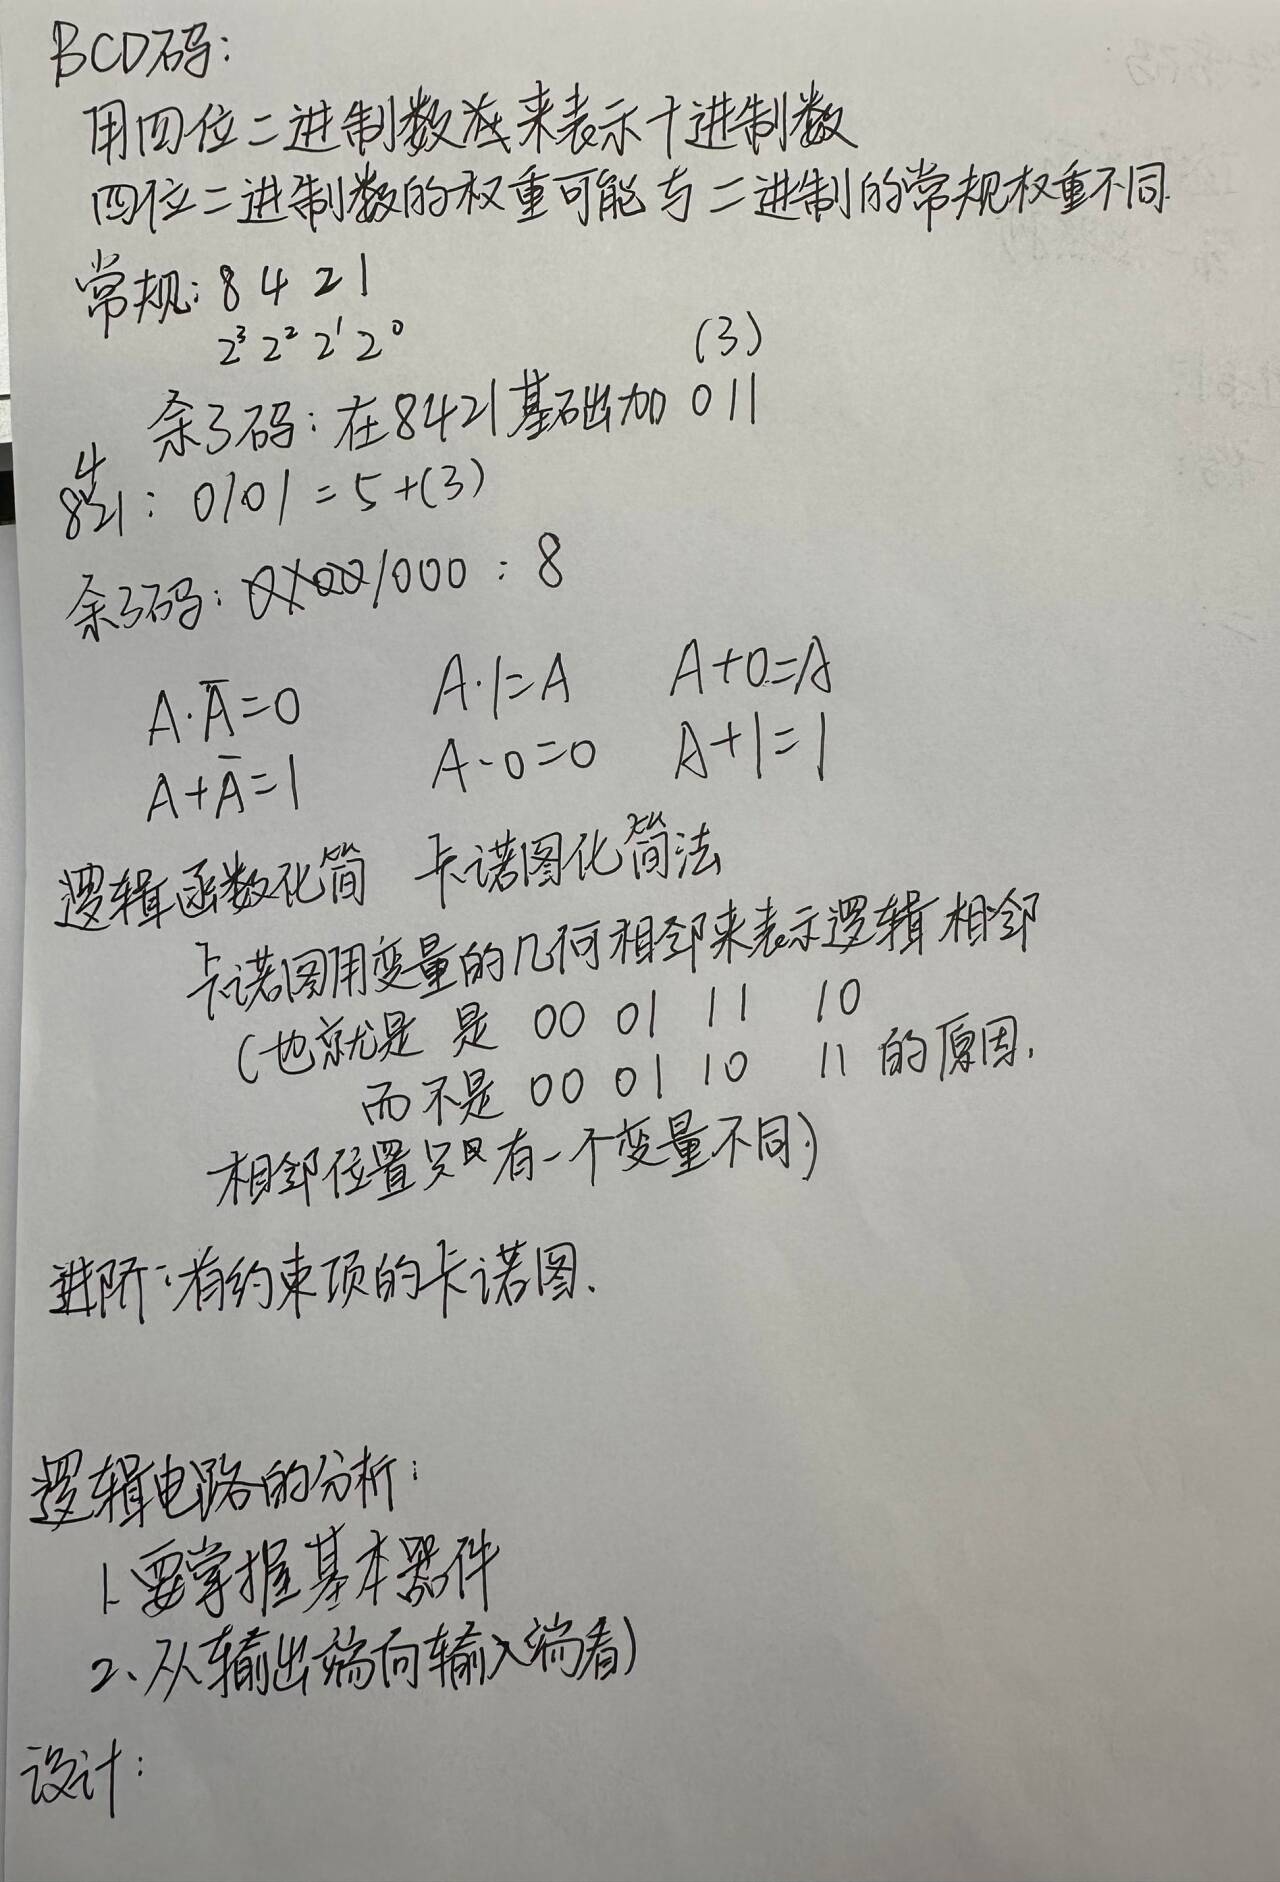 BCD码:
用四位二进制数来表示十进制数
四位二进制数的权重可能与二进制的常规权重不同
常规: 8 4 2 1
2³ 2² 2¹ 2⁰ (3)
余3码: 在8421基础加 011
8421: 0101 = 5+(3)
余3码: 1000 : 8
A·Ā=0 A·1=A A+0=A
A+Ā=1 A·0=0 A+1=1
逻辑函数化简 卡诺图化简法
卡诺图用变量的几何相邻来表示逻辑相邻
(也就是 是 00 01 11 10
而不是 00 01 10 11 的原因.
相邻位置只有一个变量不同.)
进阶: 有约束项的卡诺图.
逻辑电路的分析:
1. 要掌握基本器件
2、从输出端向输入端看)
设计: